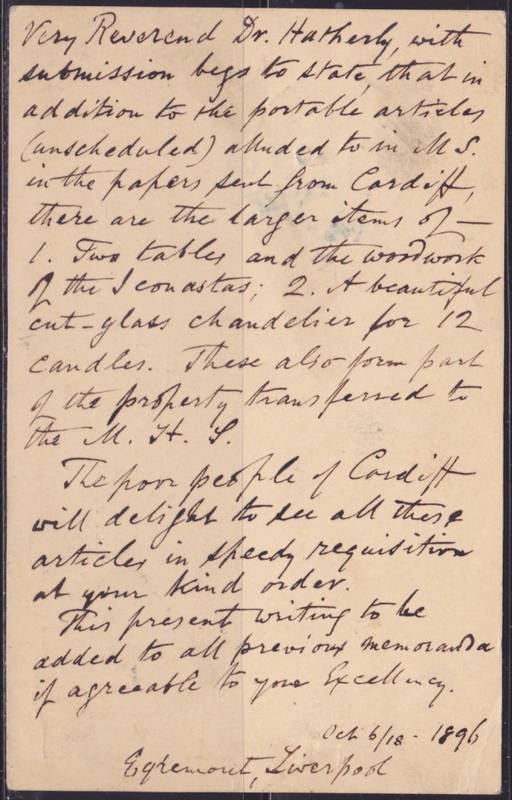 Very Reverend Dr. Hatherly, with
submission begs to state, that in
addition to the portable articles
(unscheduled) alluded to in M S.
in the papers sent from Cardiff,
there are the larger items of —
1. Two tables and the woodwork
of the Iconastas; 2. A beautiful
cut-glass chandelier for 12
candles. These also form part
of the property transferred to
the M. H. S.
The poor people of Cardiff
will delight to see all these
articles in speedy requisition
at your kind order.
This present writing to be
added to all previous memoranda
if agreeable to your Excellency.
Oct 6/18 - 1896
Egremont, Liverpool